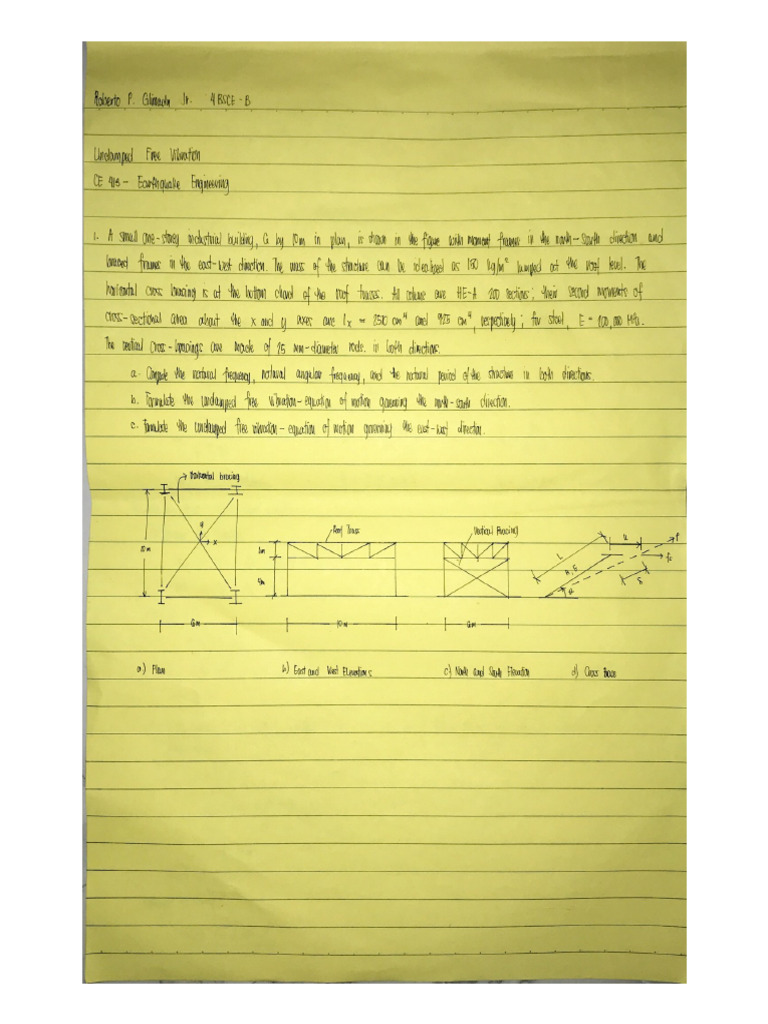 Roberto P. Jr. 4 BSCE - B
Undamped Free Vibration
CE 413 - Earthquake Engineering
1. A small one-storey industrial building, 6 by 10m in plan, is shown in the figure with moment frames in the north-south direction and
braced frames in the east-west direction. The mass of the structure can be idealized as 150 kg/m² lumped at the roof level. The
horizontal cross bracing is at the bottom chord of the roof trusses. All columns are HE-A 200 sections; their second moments of
cross-sectional area about the x and y axes are Ix = 2510 cm⁴ and 925 cm⁴, respectively; for steel, E = 200,000 MPa.
The vertical cross-bracings are made of 25 mm-diameter rods. in both direction.
a. Compute the natural frequency, natural angular frequency, and the natural period of the structure in both directions.
b. Formulate the undamped free vibration-equation of motion governing the north-south direction.
c. Formulate the undamped free vibration-equation of motion governing the east-west direction.
Horizontal bracing
Roof Truss
Vertical Bracing
y
x
10 m
5m
L
A, E
u
P
fs
δ
6m
10 m
6m
a) Plan
b) East and West Elevations
c) North and South Elevation
d) Cross Brace